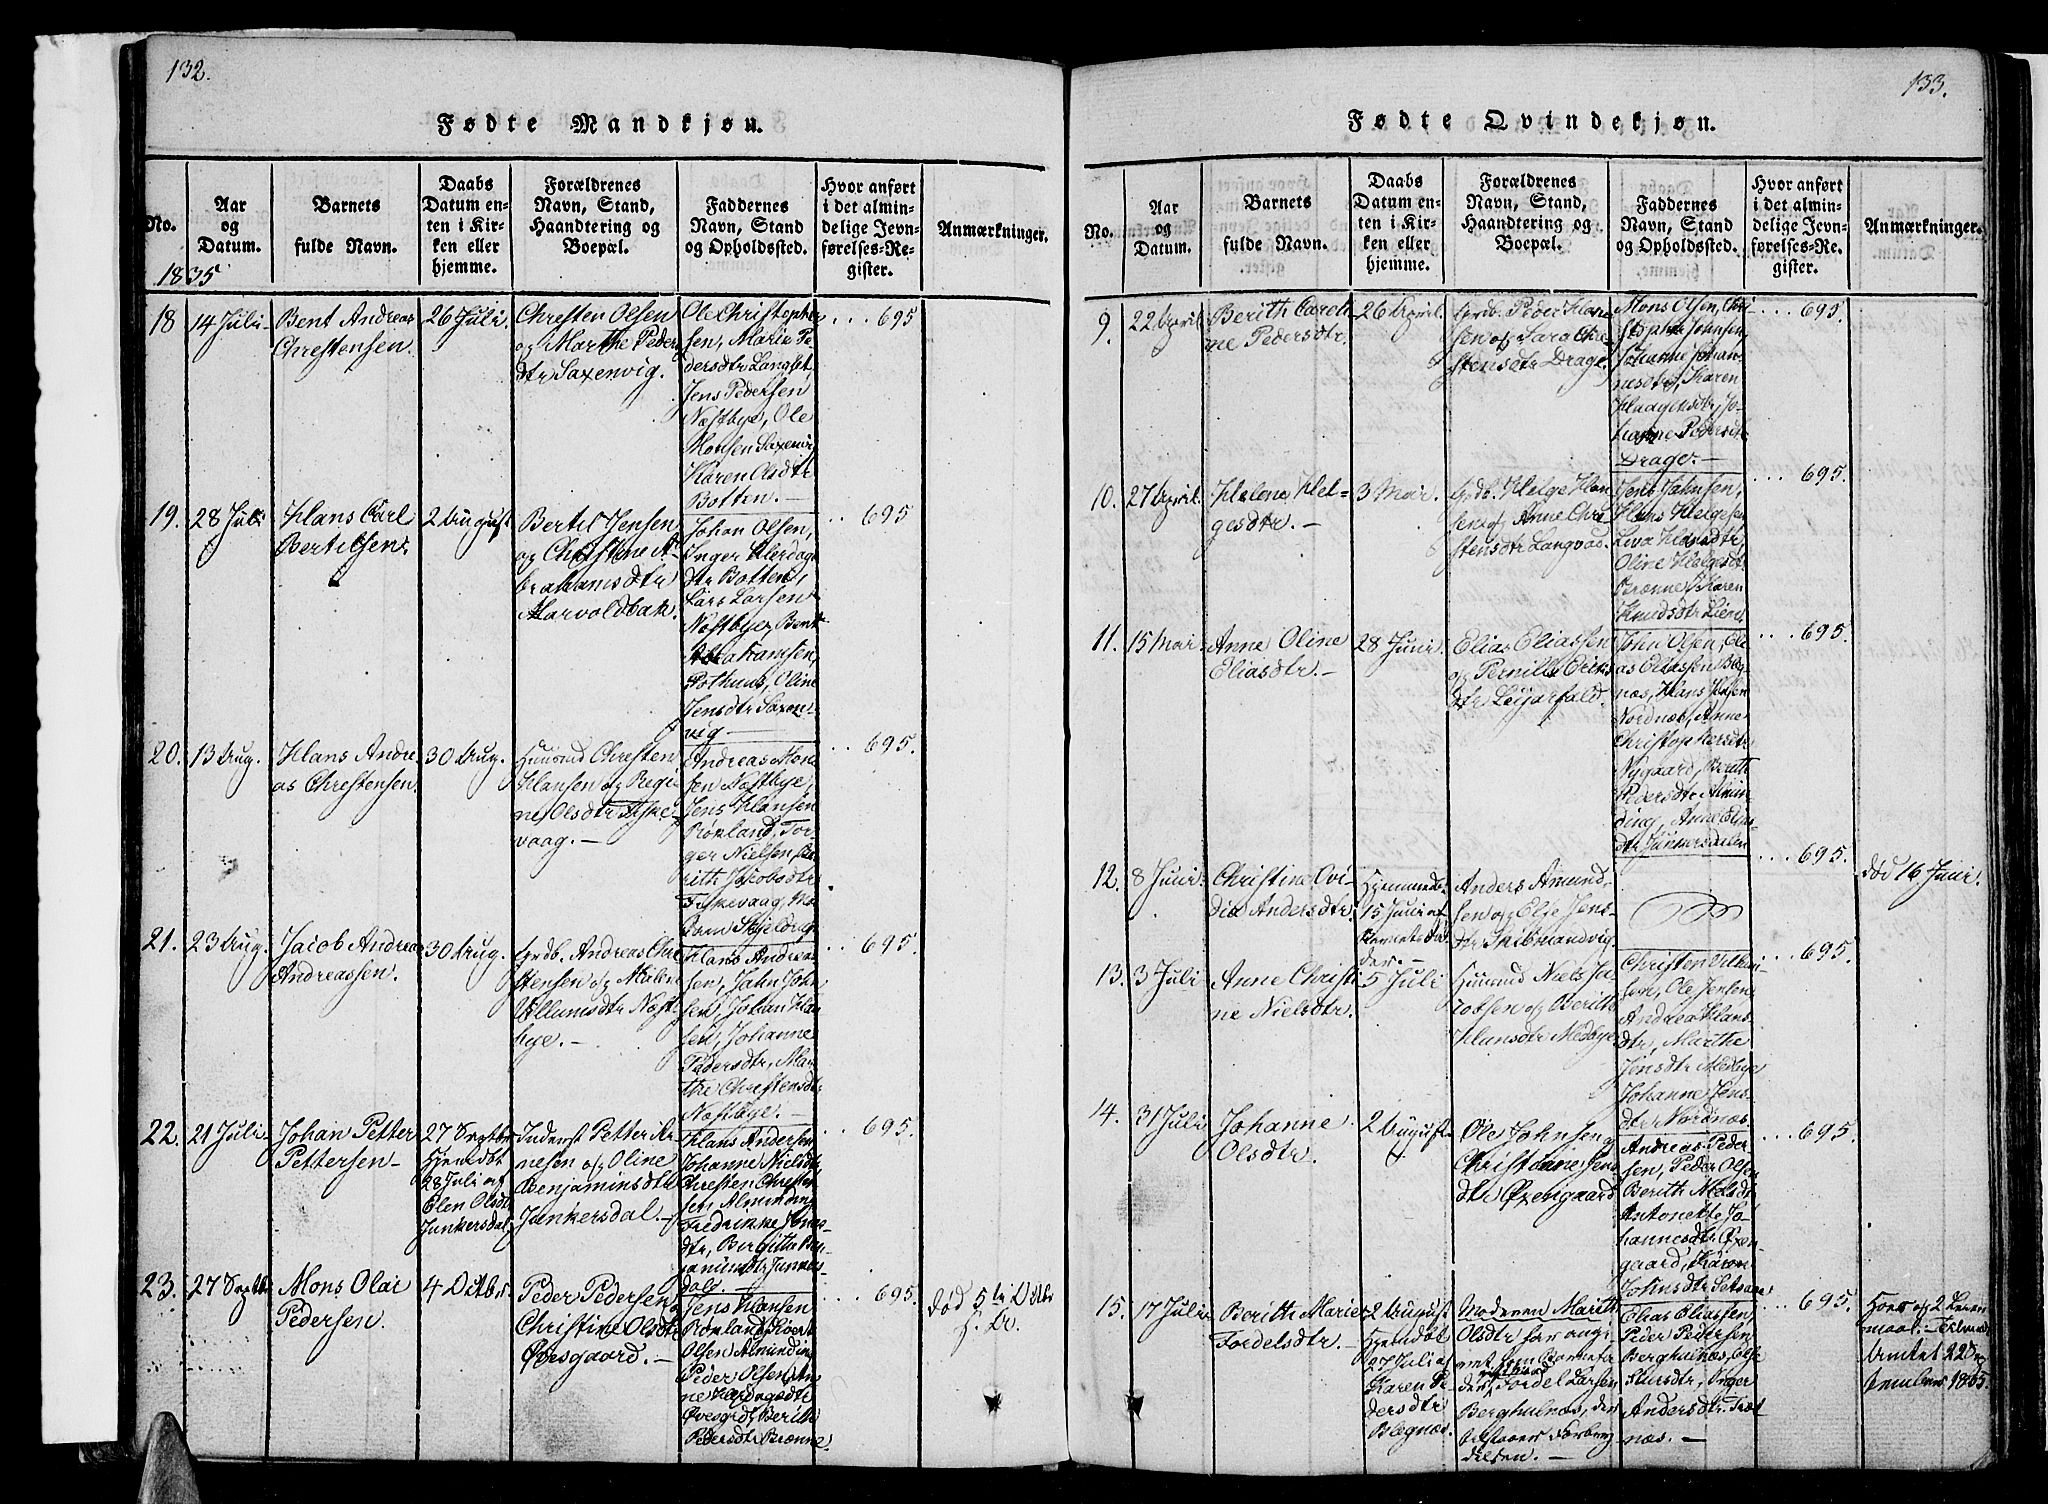 132.
Fødte Mandkjøn.
No.
Aar
og
Datum.
Barnets
fulde Navn.
Daabs
Datum en-
ten i Kir-
ken eller
hjemme.
Forældrenes
Navn, Stand,
Haandtering og
Boepæl.
Faddernes
Navn, Stand
og Opholdssted.
Hvor anført
i det almin-
delige Jevn-
førelses-Re-
gister.
Anmærkninger.
1835
18
14 Juli
Bent Andreas
Christensen.
26 Juli.
Christen Olsen
og Marthe Peders
dtr Saxenvig.
Ole Christopher
sen, Maria Pe
dersdtr Langset,
Jens Pedersen
Næstbye, Ole
Monsen Saxenvig
Karen Olsdtr
Botten. —
... 695
19.
28 Juli
Hans Carl
Bertilsen.
2 August
Bertil Jensen
og Christine A-
brahamsdtr
Harvoldbak.
Johan Olsen,
Inger
dtr Botten,
Lars Larsen
Næstbye, Bent
Abrahamsen,
Pothuus, Oline
Jensdtr Saxen-
vig —
.. 695
20.
13 Aug.
Hans Andre
as Christensen.
30 Aug.
Huusmd Christen
Hansen og Regi
ne Olsdtr Fiske
vaag. —
Andreas Mon
sen Næstbye,
Jens Hansen
Rønland, Tor-
ger Nielsen, Be
rith Jacobsdtr
Fiskevaag,
.. 695.
21.
23 Aug.
Jacob Andreas
Andreassen.
30 Aug.
Grdb. Andreas Chri
stensen og Malene
Villumsdtr Næst-
bye. —
Hans Andreas
sen, John John
sen, Johan Han
sen, Johanne
Pedersdtr, Mar
the Christensdtr
Næstbye. —
.. 695.
22.
21 Juli
Johan Petter
Pettersen —
27 Septbr
Hjemdøbt
28 Juli af
Elen Olsdtr
Junkersdal.
Inderst Petter Ar
nesen og Oline
Benjaminsdtr
Junkersdal. —
Hans Andersen
Johanne Nielsdtr
Christen Christen
sen Alminding
Fredrikke Hans
dtr, Bergitha Ben
jaminsdtr Junkers
dal. —
.. 695.
23.
27 Septbr
Mons Olai
Pedersen.
4 Octbr.
Peder Pedersen
Christine Olsdtr
Øvesgaard. —
Jens Hansen
Rønland, Sivert
Olsen Almindin
Peder Olsen, An
ne
Øvesgrd, Berith
Pedersdtr Brønne
... 695.
død 5te Octbr
133.
Fødte Qvindekjøn.
No.
Aar
og
Datum.
Barnets
fulde Navn.
Daabs
Datum en-
ten i Kir-
ken eller
hjemme.
Forældrenes
Navn, Stand,
Haandtering og
Boepæl.
Faddernes
Navn, Stand
og Opholdssted.
Hvor anført
i det almin-
delige Jevn-
førelses-Re-
gister.
Anmærkninger.
9.
22 April
Berith Caroli
ne Pedersdtr.
26 April.
Grdb. Peder Han
sen og Sara Chri
stensdtr Drage.
Mons Olsen, Chri
stopher Johnsen,
Johanne Johan
nesdtr, Karen
Haagensdtr, Jo-
hanne Pedersdtr
Drage. —
.... 695.
10.
27 April.
Helene Hel-
gesdtr. —
3 Mai.
Grdb. Helge Han
sen og Anne Chri
stensdtr Langvad.
Jens Johnsen,
Hans Helgesen
Oline Helgesdtr
Brønne, Karen
Knudsdtr Lien.
.... 695.
11.
15 Mai
Anne Oline
Eliasdtr. —
28 Juni
Elias Eliassen
og Pernille Eriks
dtr Leijarfald.
John Olsen, Eli
as Eriksen Bleg
næs, Hans Jensen
Nordnæs, Anne
Christophersdtr
Nygaard, Berith
Pedersdtr Almin
ding, Anne Elias
dtr Junkersdalen
.... 695.
12.
8 Juni
Christine Ovi-
dia Andersdtr.
Hjemmedøbt
15 Juni af
Barnets Fa
der. —
Anders Amund
sen og Else Jens-
dtr Skibmandvig.
.... 695.
død 16 Juni.
13.
3 Juli
Anne Christi
ne Nielsdtr.
5 Juli
Huusmd Niels Ja
cobsen og Berith
Hansdtr Medbye
Christen
sen, Ole Jensen
Andrea Hans
dtr, Marthe
Jensdtr Medbye
Johanne Jens
dtr Nordnæs.
.... 695.
14.
31 Juli
Johanne
Olsdtr.
2 August
Ole Johnsen og
Christine Jens
dtr Øxengaard
Andreas Peder
sen, Peder Olsen
Berith Nielsdtr
Antonette Jo-
hannesdtr Øxen
gaard, Karen
Johnsdtr
.... 695.
15.
17 Juli
Berith Marie
Fordelsdtr. —
2 August
Hjemdøbt
27 Juli af
Karen Pe
dersdtr
Blegnæs.
Moderen Marith
Olsdtr har angi
vet som Barnefa
der Fordel Larsen
Berghulnæs, den
Elias Eliassen,
Peder Pedersen
Berghulnæs, Else
Inger
Andersdtr Tvet
næs. —
.... 695.